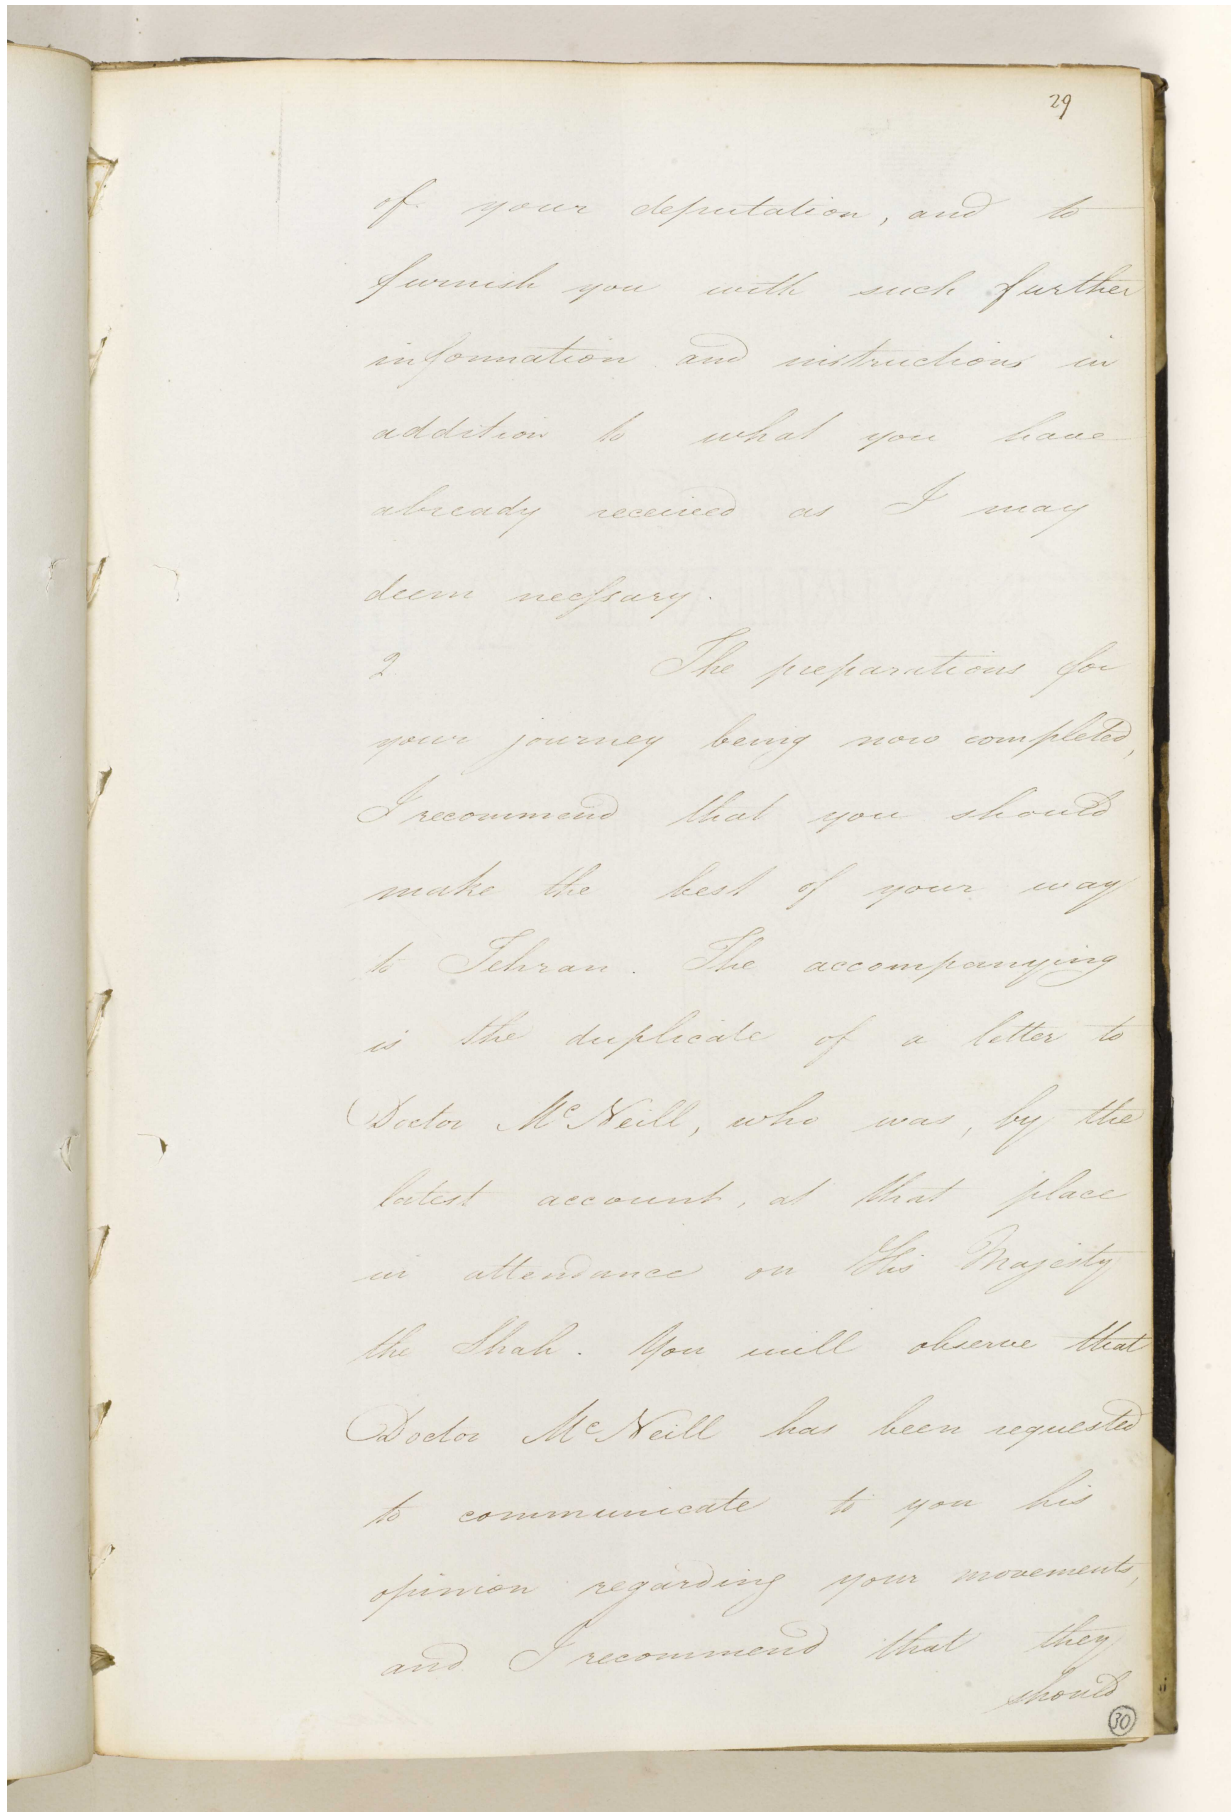 29
of your deputation, and to
furnish you with such further
information and instructions in
addition to what you have
already received as I may
deem necessary.
2 The preparations for
your journey being now completed,
I recommend that you should
make the best of your way
to Tehran. The accompanying
is the duplicate of a letter to
Doctor McNeill, who was, by the
latest account, at that place
in attendance on His Majesty
the Shah. You will observe that
Doctor McNeill has been requested
to communicate to you his
opinion regarding your movements,
and I recommend that they
should
30